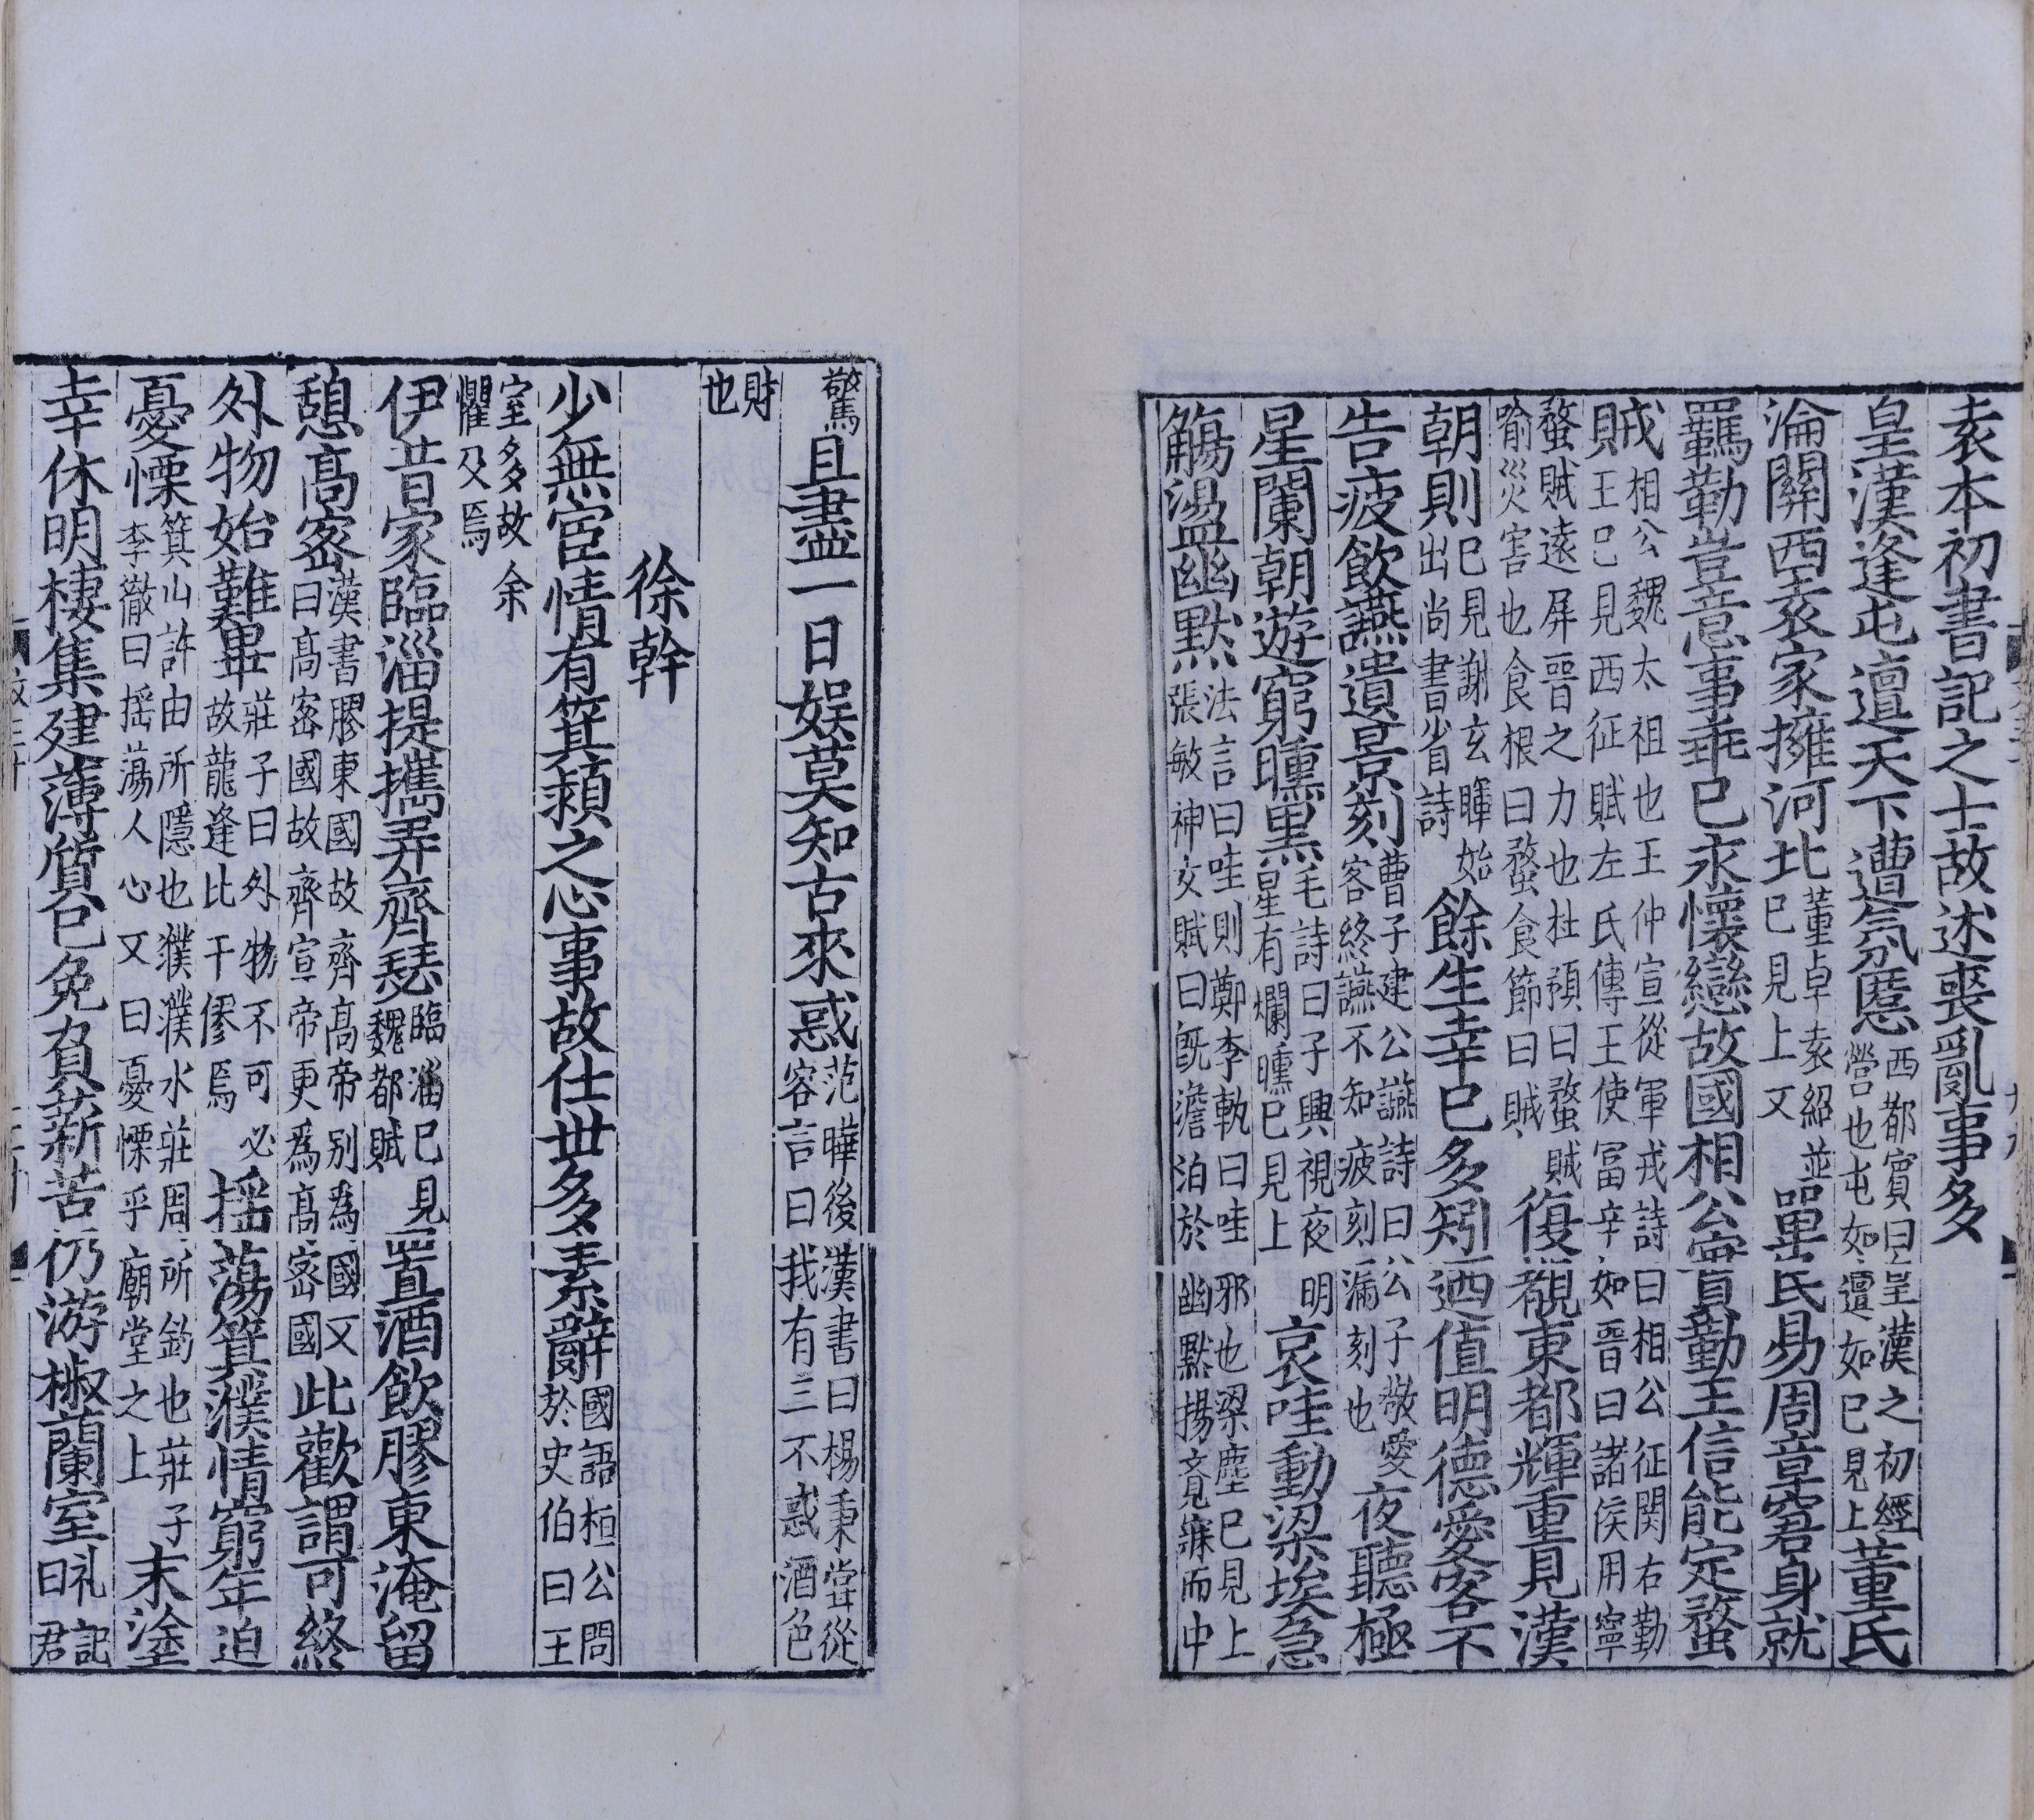 袁本初書記之士故述喪亂事多
皇漢逢屯邅天下遭氛慝西都賔曰皇漢之初經營也屯如邅如已見上董氏
淪關西袁家擁河北董卓袁紹並已見上又單民易周章窘身就
羈勒豈意事乖已永懷戀故國相公寔勤王信能定蝥
賊相公魏太祖也王仲宣從軍戎詩曰相公征関右勤王已見西征賦左氏傳王使富辛如晉曰諸侯用寧
蝥賊遠屏晉之力也杜預曰蝥賊喻災害也食根曰蝥食節曰賊復覩東都輝重見漢
朝則已見謝玄暉始出尚書省詩餘生幸已多矧迺值明德愛客不
告疲飲讌遺景刻曹子建公讌詩曰公子敬愛客終讌不知疲刻漏刻也夜聽極
星闌朝遊窮曛黑毛詩曰子興視夜明星有爛曛已見上哀哇動梁埃急
觴盪幽默法言曰哇則鄭李軌曰哇邪也梁塵已見上張敏神女賦曰旣澹泊於幽黙揚竟寐而中
驚且盡一日娛莫知古來惑范曄後漢書曰楊秉嘗從容言曰我有三不惑酒色
財也
徐幹
少無宦情有箕潁之心事故仕世多素辭國語桓公問於史伯曰王
室多故余懼及焉
伊昔家臨淄提攜弄齊瑟臨淄已見魏都賦置酒飲膠東淹留
憩高宻漢書膠東國故齊高帝别爲國又曰高宻國故齊宣帝更爲高宻國此歡謂可終
外物始難畢莊子曰外物不可必故龍逢比干僇焉摇蕩箕濮情窮年迫
憂慄箕山許由所隱也濮濮水莊周所釣也莊子李徹曰摇蕩人心又曰憂慄乎廟堂之上末塗
幸休明棲集建薄質已免負薪苦仍游椒蘭室礼記曰君